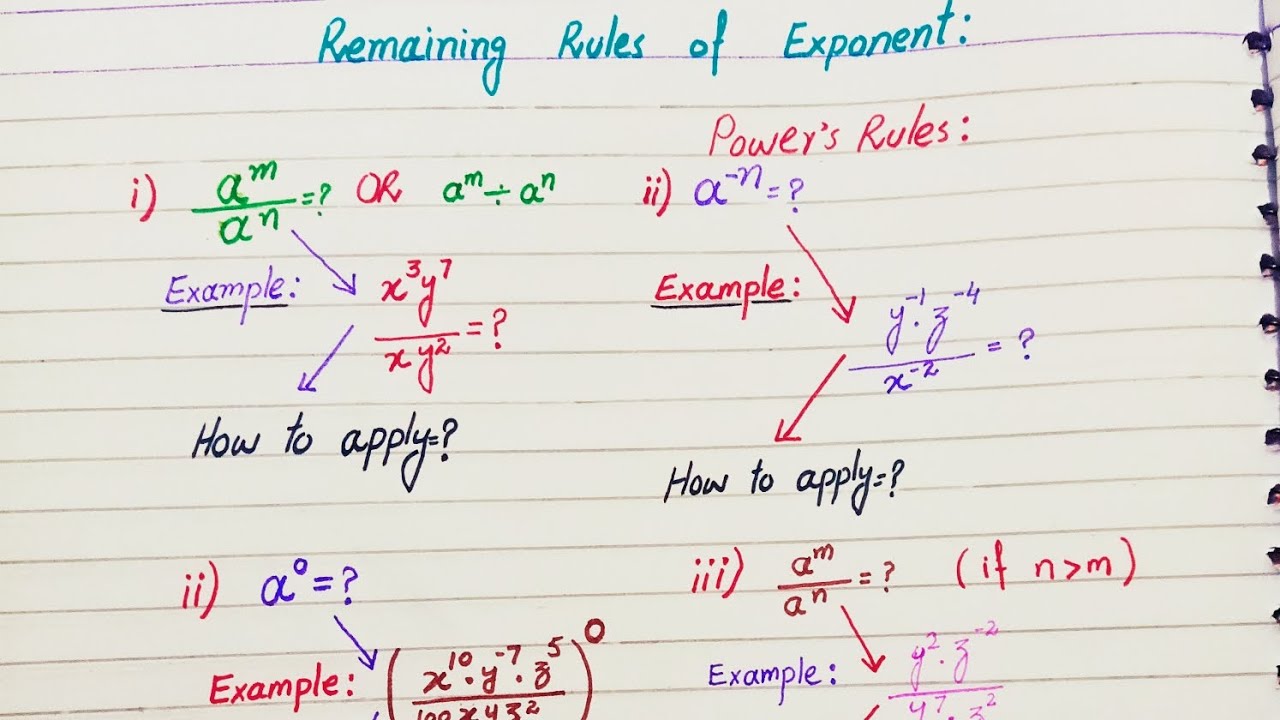 Remaining Rules of Exponent:
Power's Rules:
i) a^m / a^n = ? OR a^m ÷ a^n
Example: x^3 y^7 / x y^2 = ?
How to apply=?
ii) a^-n = ?
Example: y^-1 . z^-4 / x^-2 = ?
How to apply=?
ii) a^0 = ?
Example: ( x^10 . y^-7 . z^5 / 100 x y z^2 )^0
iii) a^m / a^n = ? (if n>m)
Example: y^2 . z^-2 / y^7 . z^2